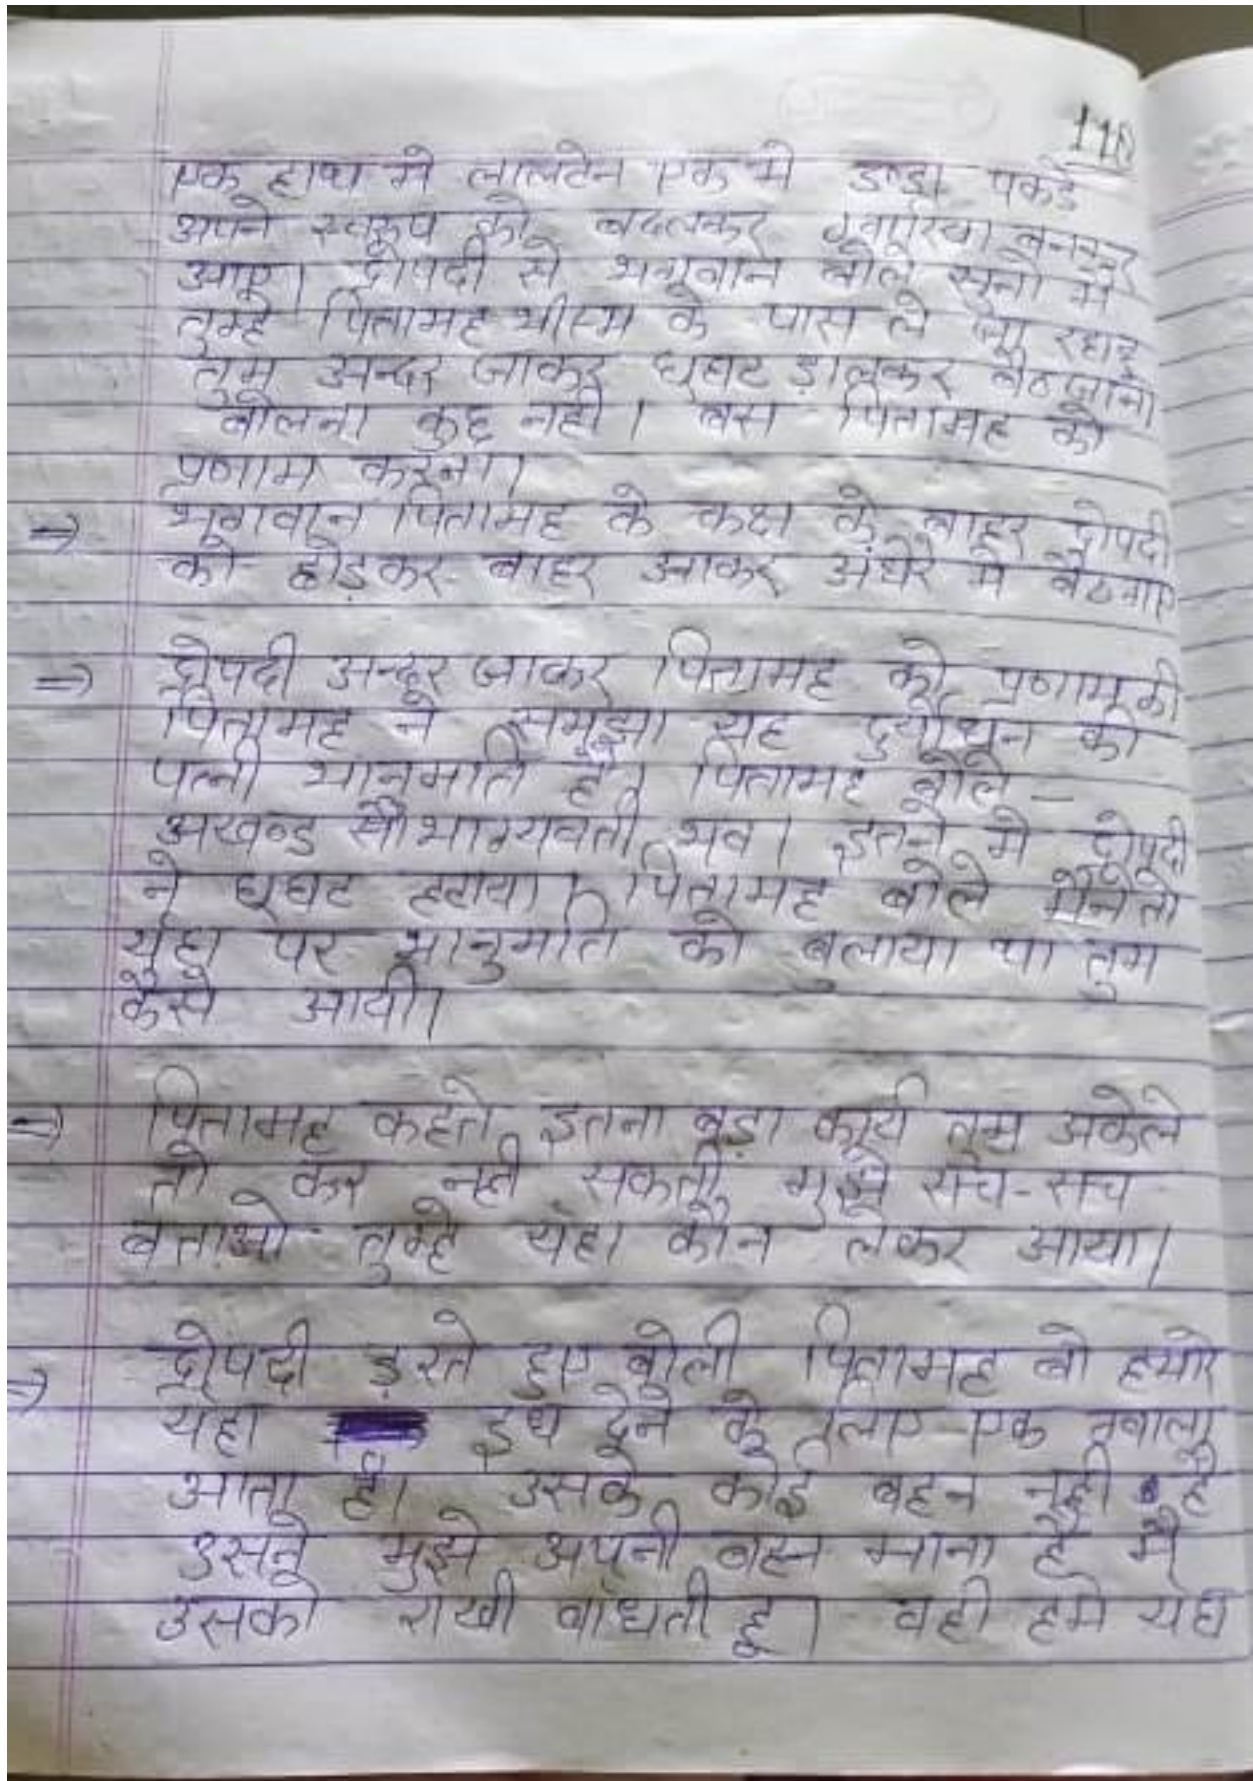 110
एक हाथ मे लालटेन एक मे डण्डा पकडे
अपने स्वरूप को बदलकर बनकर
आए। द्रोपदी से भगवान बोले सुनो मै
तुम्हे पितामह भीष्म के पास ले जा रहा हू
तुम अन्दर जाकर घूघट डालकर बैठजाना
बोलना कुछ नही। बस पितामह को
प्रणाम करना।
⇒ भगवान पितामह के कक्ष के बाहर द्रोपदी
को छोड़कर बाहर आकर अंधेरे मे बैठगए
⇒ द्रोपदी अन्दर जाकर पितामह को प्रणाम की
पितामह ने समझा यह दुर्योधन की
पत्नी भानुमति है। पितामह बोले –
अखण्ड सौभाग्यवती भव। इतने मे द्रोपदी
ने घूघट हटाया। पितामह बोले मैने तो
यहा पर भानुमति को बुलाया था तुम
कैसे आयी।
⇒ पितामह कहते इतना बड़ा कार्य तुम अकेले
तो कर नही सकती मुझे सच-सच
बताओ तुम्हे यहा कौन लेकर आया।
⇒ द्रोपदी ड़रते हुए बोली पितामह वो हमारे
यहा दूध देने के लिए एक ग्वाला
आता है। उसके कोई बहन नही है
उसने मुझे अपनी बहन माना है मै
उसको राखी बांधती हू। वही हमे यहा